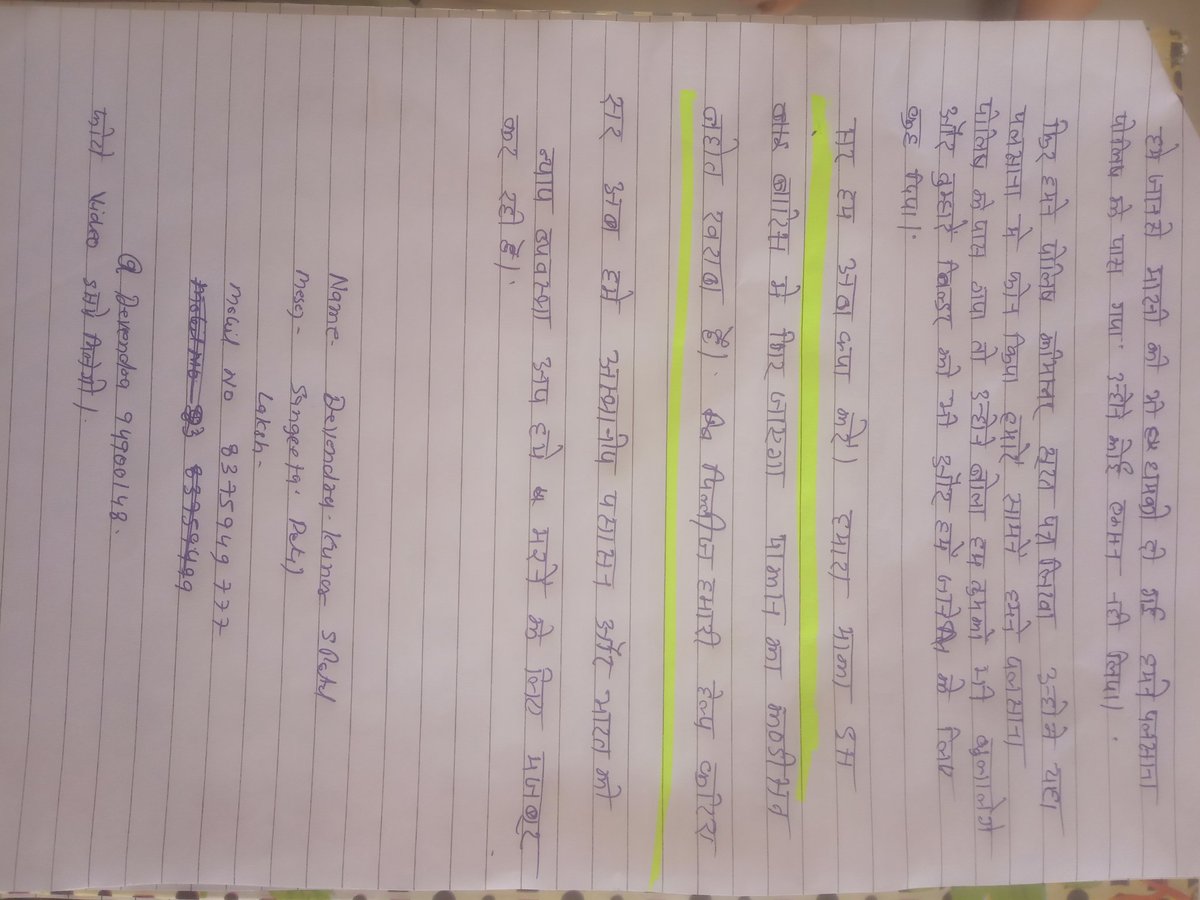 हमे जानसे मारने की भी धमकी दी गई हमने पलसाना
पोलिस के पास गया इन्होने कोई एक्सन नही लिया।
फिर हमने पोलिस कमिश्नर सुरत पत्र लिखा उन्होने यहा
पलसाना मे फोन किया हमारे सामने हमने पलसाना
पोलिस के पास गए तो इन्होने बोला हम तुमको भी बुलालेगे
और तुम्हारे बिल्डर को भी और हमें जाने के लिए
कह दिया।
सर हम अब क्या करें। हमारा माल इस
बारिस मे फिर जाएगा मकान का कन्डीसन
बहोत खराब है। हमारी हेल्प करिए
सर अब हमे स्थानीय प्रशासन और भारत की
न्याय व्यवस्था आप हमे मरने के लिए मजबुर
कर रही है।
Name- Devendar Kumar Patel
Sangeeta Patel
Laksh-
Mobil No 8375949777
@ Devendar 94900148.
फोटो Video इसमे मिलेगी।